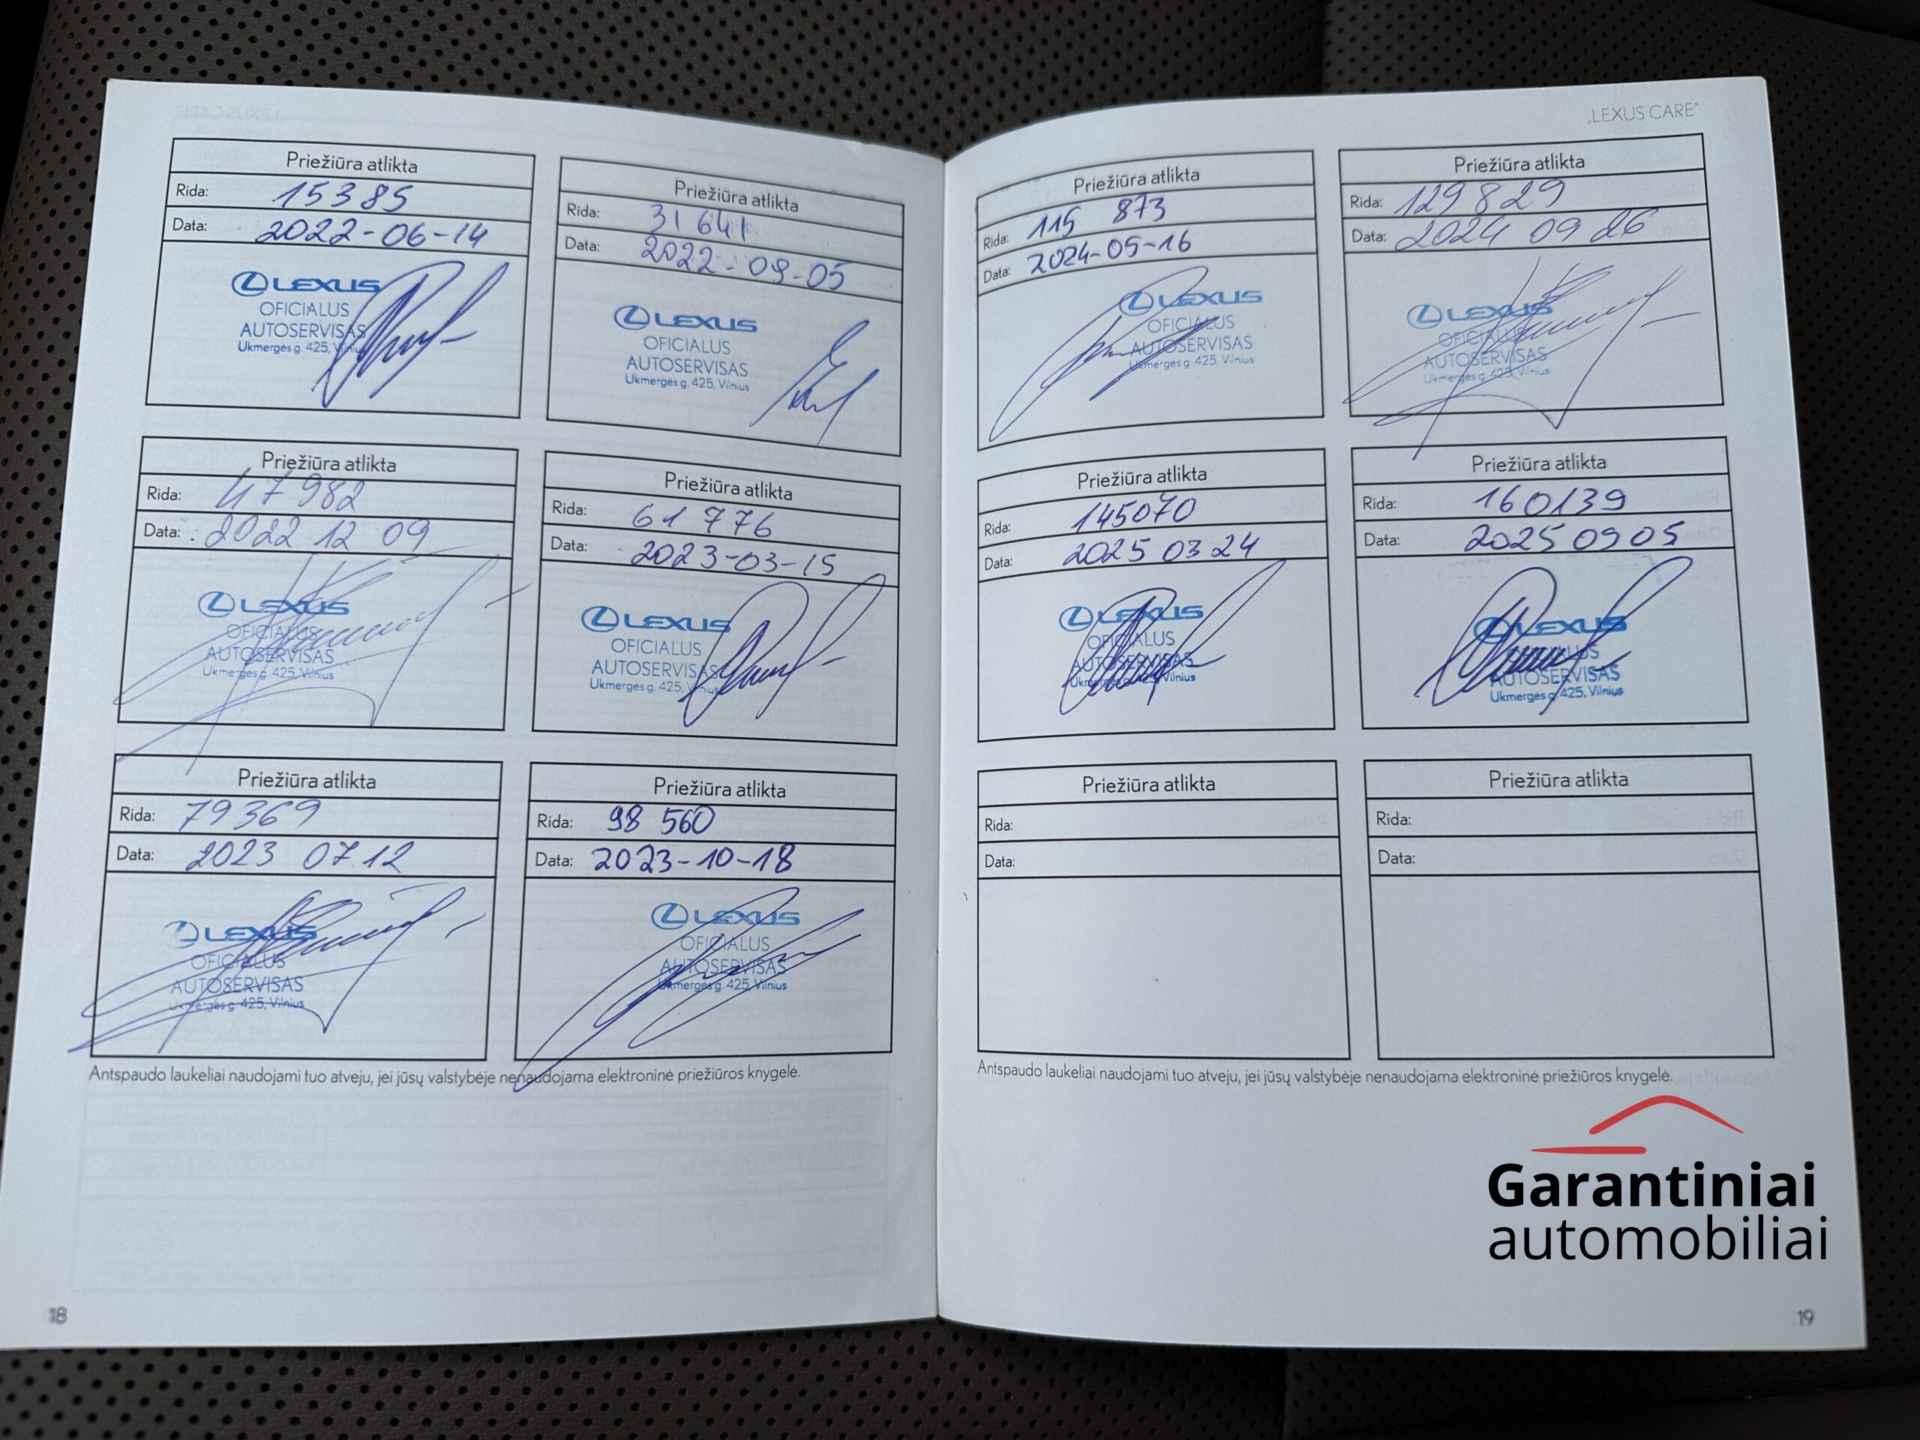 „LEXUS CARE"
Priežiūra atlikta
Rida: 15385
Data: 2022-06-14
LEXUS
OFICIALUS
AUTOSERVISAS
Ukmergės g. 425, Vilnius
Priežiūra atlikta
Rida: 31 641
Data: 2022-09-05
LEXUS
OFICIALUS
AUTOSERVISAS
Ukmergės g. 425, Vilnius
Priežiūra atlikta
Rida: 47982
Data: 2022 12 09
LEXUS
OFICIALUS
AUTOSERVISAS
Ukmergės g. 425, Vilnius
Priežiūra atlikta
Rida: 61 776
Data: 2023-03-15
LEXUS
OFICIALUS
AUTOSERVISAS
Ukmergės g. 425, Vilnius
Priežiūra atlikta
Rida: 79369
Data: 2023 07.12
LEXUS
OFICIALUS
AUTOSERVISAS
Ukmergės g. 425, Vilnius
Priežiūra atlikta
Rida: 98 560
Data: 2023-10-18
LEXUS
OFICIALUS
AUTOSERVISAS
Ukmergės g. 425, Vilnius
Antspaudo laukeliai naudojami tuo atveju, jei jūsų valstybėje nenaudojama elektroninė priežiūros knygelė.
18
Priežiūra atlikta
Rida: 115 873
Data: 2024-05-16
LEXUS
OFICIALUS
AUTOSERVISAS
Ukmergės g. 425, Vilnius
Priežiūra atlikta
Rida: 129829
Data: 2024 09 26
LEXUS
OFICIALUS
AUTOSERVISAS
Ukmergės g. 425, Vilnius
Priežiūra atlikta
Rida: 145070
Data: 2025 03 24
LEXUS
OFICIALUS
AUTOSERVISAS
Ukmergės g. 425, Vilnius
Priežiūra atlikta
Rida: 160139
Data: 2025 09 05
LEXUS
OFICIALUS
AUTOSERVISAS
Ukmergės g. 425, Vilnius
Priežiūra atlikta
Rida:
Data:
Priežiūra atlikta
Rida:
Data:
Antspaudo laukeliai naudojami tuo atveju, jei jūsų valstybėje nenaudojama elektroninė priežiūros knygelė.
Garantiniai
automobiliai
19